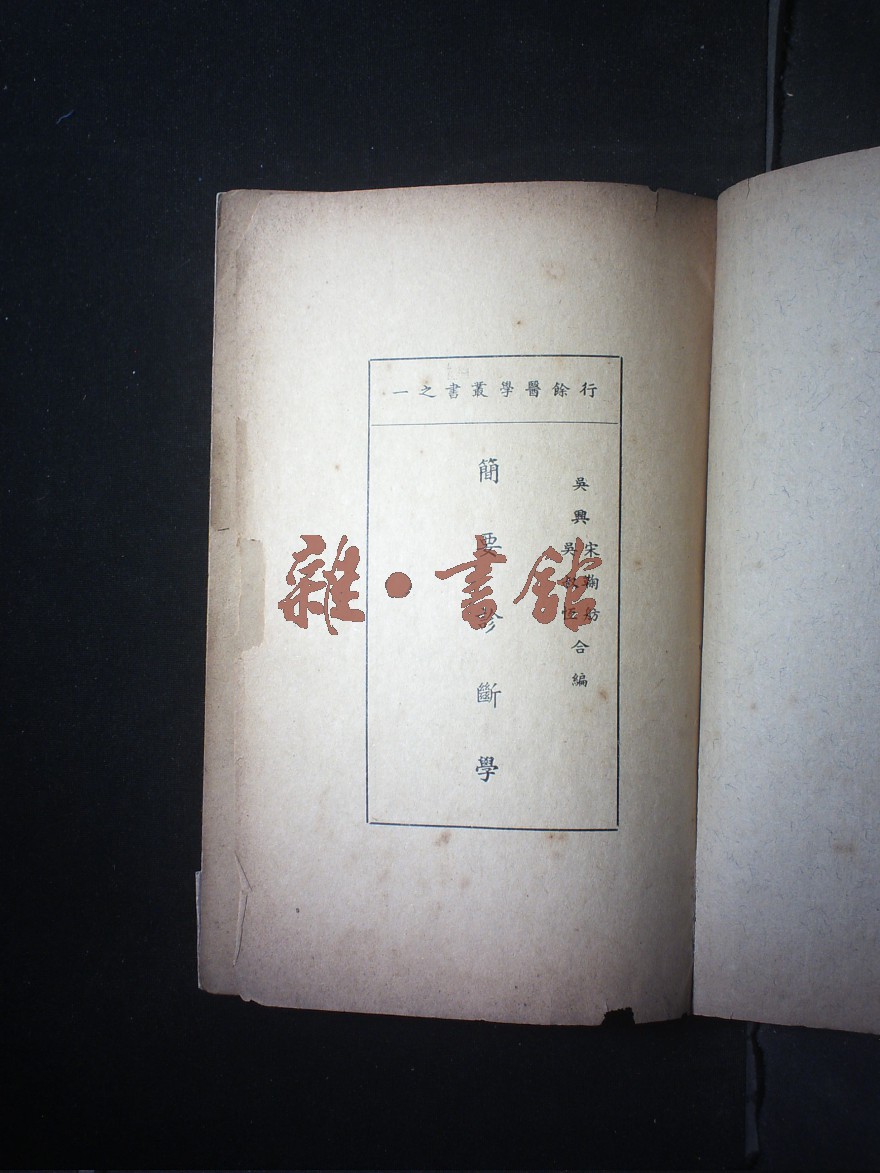 行餘醫學叢書之一
吳興
宋鞠舫
吳叔恆
合編
簡要診斷學
雜·書館